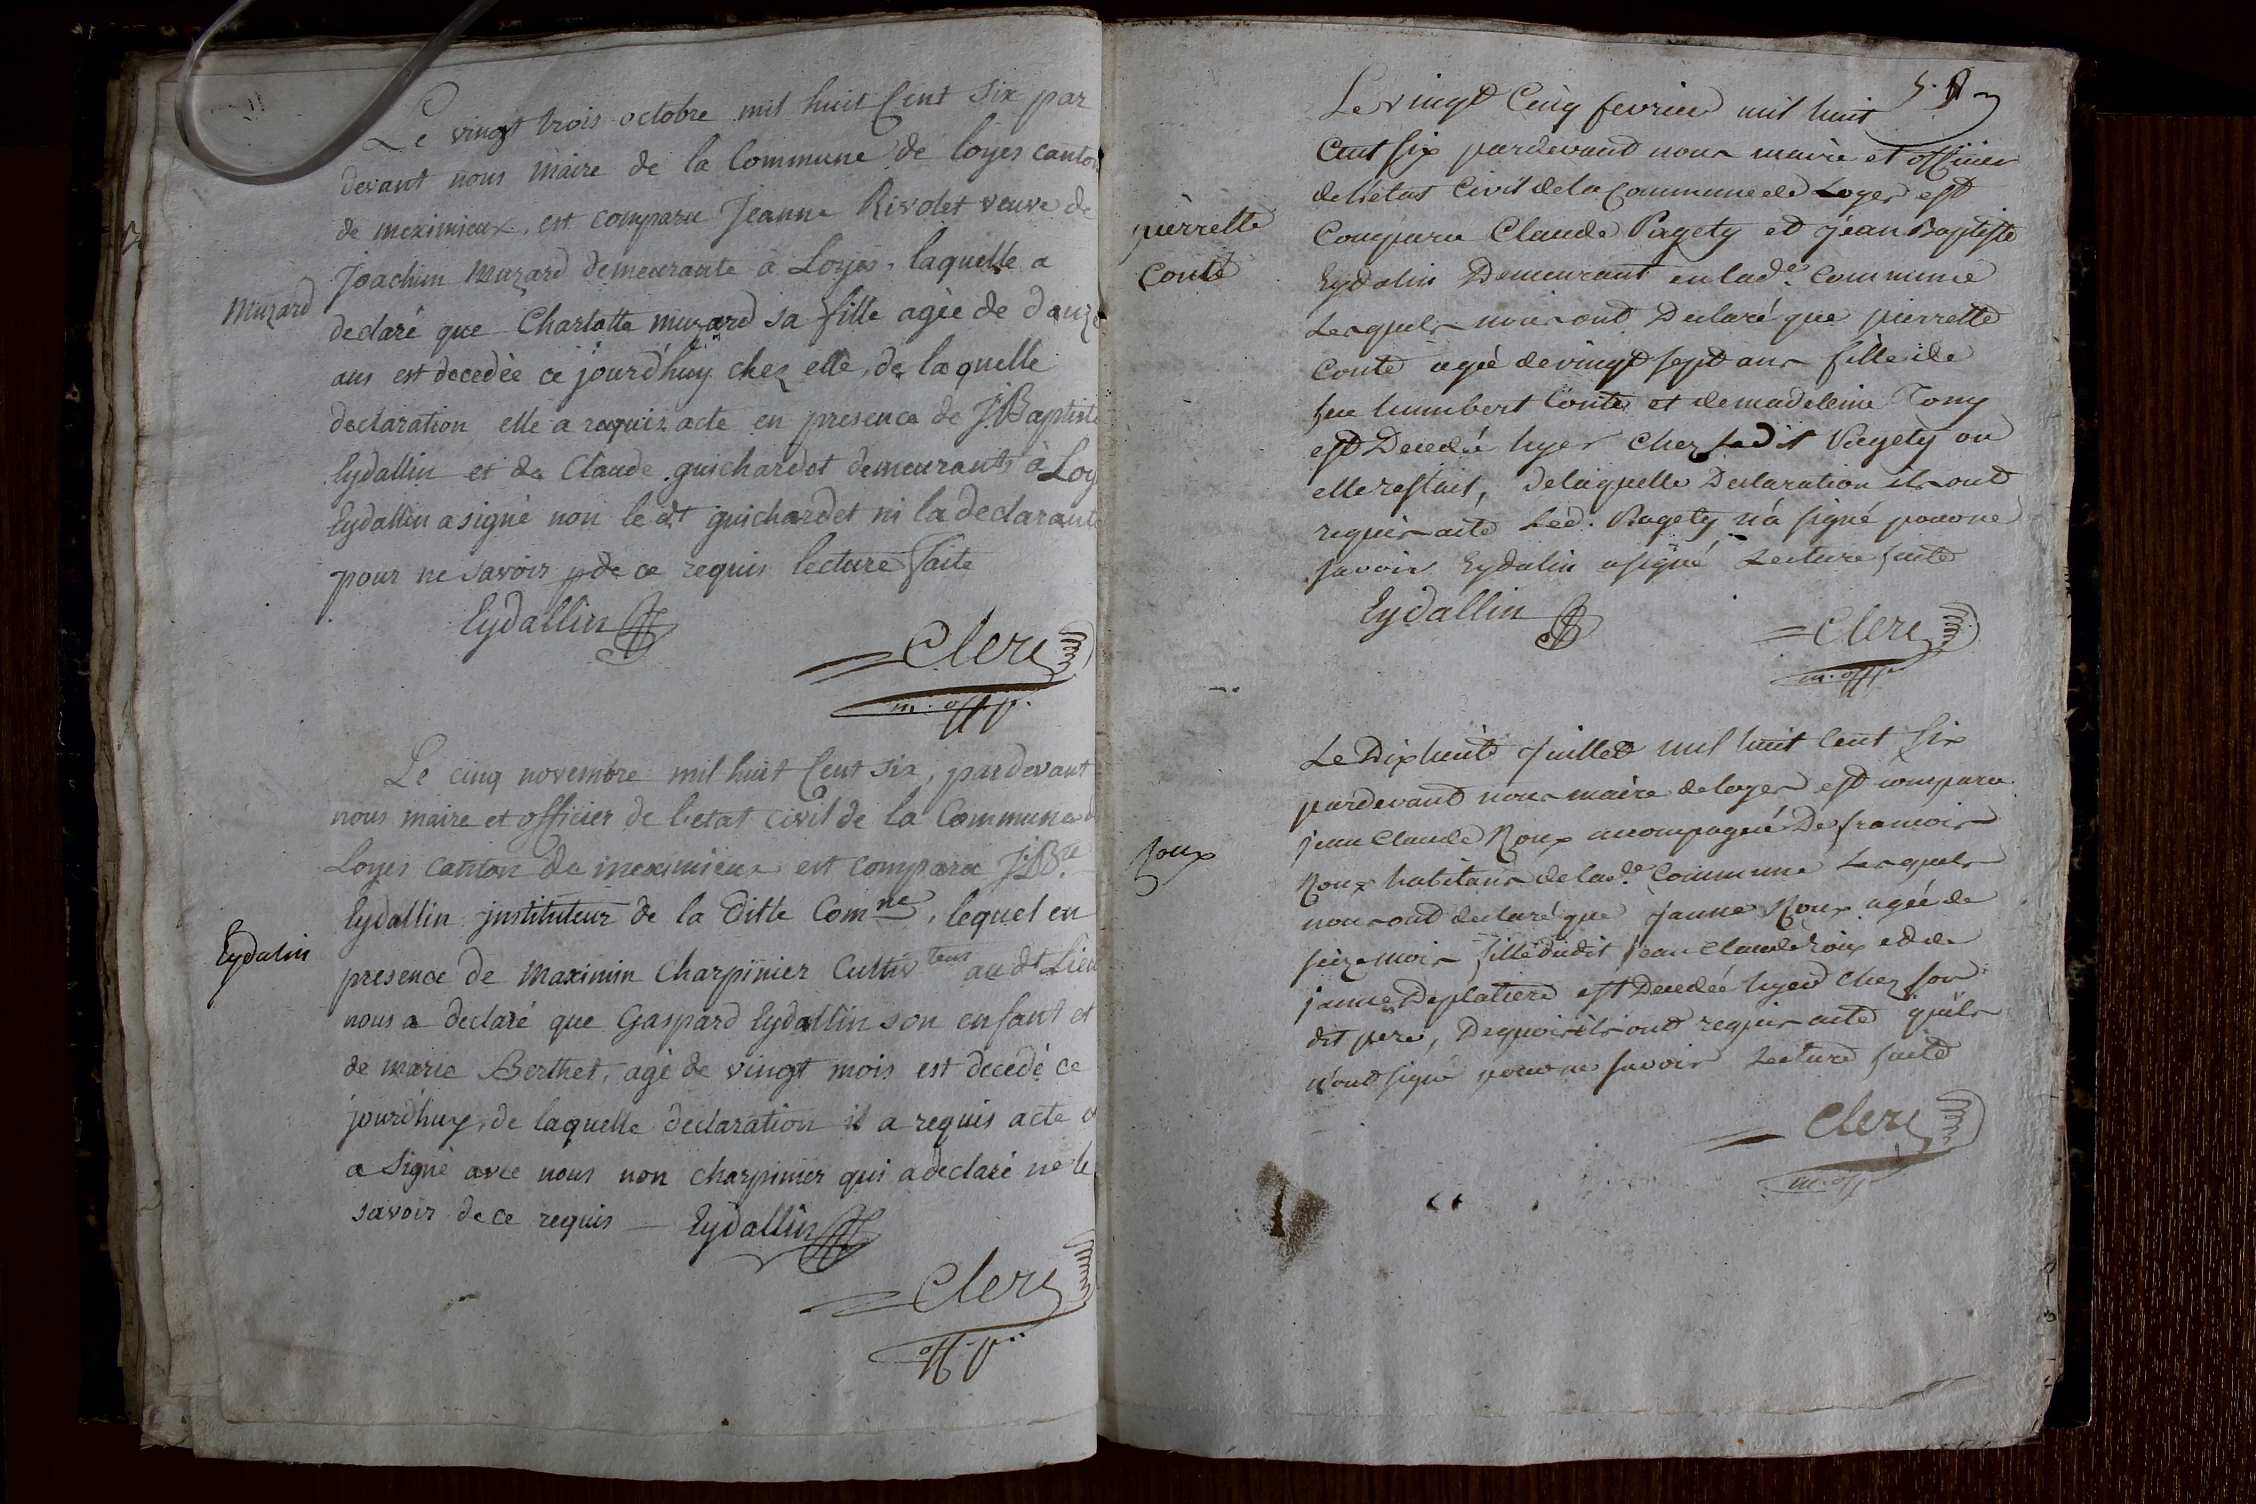 Le vingt trois octobre mil huit Cent Six par
devant nous maire de la Commune de loyes canton
de meximieux, est comparu Jeanne Rivolet veuve de
Joachim Muzard demeurante a Loyes, laquelle a
Muzard
declaré que Charlotte muzard sa fille agée de douze
ans est decedée ce jourd'huy chez elle, de laquelle
declaration elle a requis acte en presence de J. Baptiste
Eydallin et de Claude guichardet demeurants à Loy
Eydallin a signé non le dt guichardet ni la declarante
pour ne savoir de ce requis lecture faite
Eydallin
Clerc
m. off. p.
Le cinq novembre mil huit Cent six, pardevant
nous maire et officier de l'etat civil de la Commune d
Loyes canton de meximieux est comparu J. Bte
Eydallin jnstituteur de la ditte Comne, lequel en
Eydalin
presence de Maximin Charpinier Cultivteur au dt Lieu
nous a declaré que Gaspard Eydallin son enfant et
de marie Berthet, agé de vingt mois est decedé ce
jourdhuy, de laquelle declaration il a requis acte et
a signé avec nous non charpinier qui a declaré ne le
savoir de ce requis — Eydallin
Clerc
off. p.
Le vingt Cinq fevrier mil huit
Cent Six pardevant nous maire et officier
de l'etat Civil de la Commune de Loyes est
pierrette
Comparu Claude Pagety et jean Baptiste
Conte
Eydalin Demeurant en lade. Commune
Lesquels nous ont Declaré que pierrette
Conte agée de vingt sept ans fille de
feu humbert Conte et de madeleine Tony
est Decedée hyer Chez Ledit Pagety ou
elle restait, de laquelle Declaration ils ont
requis acte Led. Pagety n'a signé pour ne
savoir Eydalin a signé Lecture faite
Eydallin
Clerc
m. off. p.
Le Dix huit Juillet mil huit Cent Six
pardevant nous maire de loyes est comparu
jean Claude Roux accompagné De francois
Roux
Roux habitans de lade. Commune Lesquels
nous ont declaré que Janne Roux agée de
seize mois fille dudit jean Claude Roux et de
janne Deplatiere est Decedée hyer chez son
dit pere, Dequoi ils ont requis acte qu'ils
n'ont signé pour ne savoir Lecture faite
Clerc
m. off.